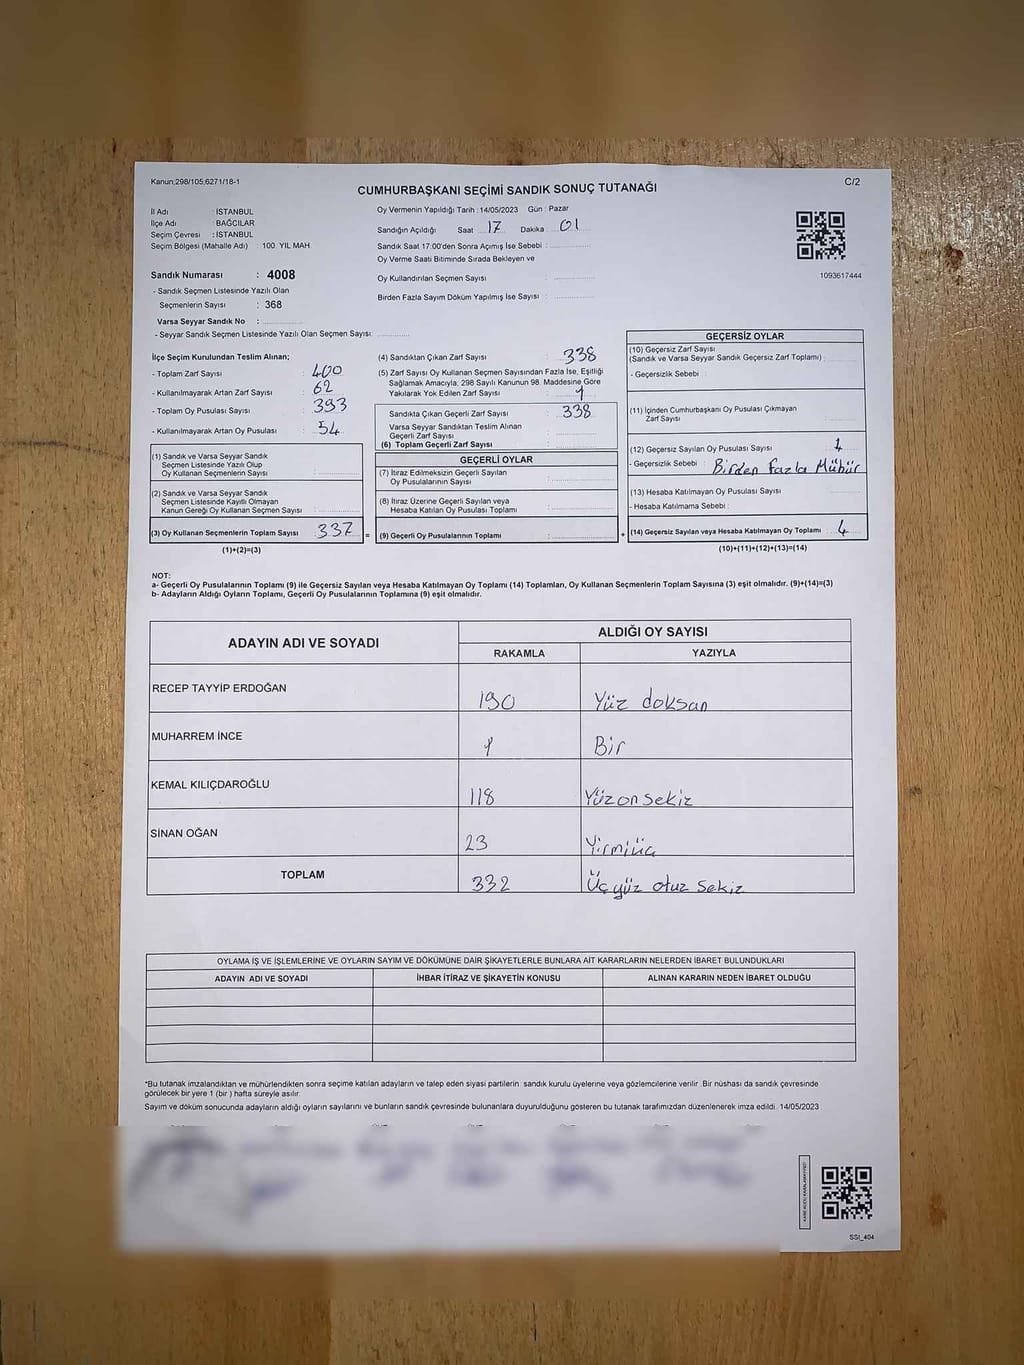 Kanun;298/105,6271/18-1
CUMHURBAŞKANI SEÇİMİ SANDIK SONUÇ TUTANAĞI
C/2
İl Adı : İSTANBUL
İlçe Adı : BAĞCILAR
Seçim Çevresi : İSTANBUL
Seçim Bölgesi (Mahalle Adı) : 100. YIL MAH.
Oy Vermenin Yapıldığı Tarih : 14/05/2023 Gün : Pazar
Sandığın Açıldığı Saat : 17 Dakika : 01
Sandık Saat 17:00'den Sonra Açımış İse Sebebi :
Oy Verme Saati Bitiminde Sırada Bekleyen ve
Oy Kullandırılan Seçmen Sayısı :
Birden Fazla Sayım Döküm Yapılmış İse Sayısı :
1093617444
Sandık Numarası : 4008
- Sandık Seçmen Listesinde Yazılı Olan
Seçmenlerin Sayısı : 368
Varsa Seyyar Sandık No :
- Seyyar Sandık Seçmen Listesinde Yazılı Olan Seçmen Sayısı:
İlçe Seçim Kurulundan Teslim Alınan;
- Toplam Zarf Sayısı : 400
- Kullanılmayarak Artan Zarf Sayısı : 62
- Toplam Oy Pusulası Sayısı : 393
- Kullanılmayarak Artan Oy Pusulası : 54
(1) Sandık ve Varsa Seyyar Sandık
Seçmen Listesinde Yazılı Olup
Oy Kullanan Seçmenlerin Sayısı :
(2) Sandık ve Varsa Seyyar Sandık
Seçmen Listesinde Kayıtlı Olmayan
Kanun Gereği Oy Kullanan Seçmen Sayısı :
(3) Oy Kullanan Seçmenlerin Toplam Sayısı : 337 =
(1)+(2)=(3)
(4) Sandıktan Çıkan Zarf Sayısı : 338
(5) Zarf Sayısı Oy Kullanan Seçmen Sayısından Fazla İse, Eşitliği
Sağlamak Amacıyla; 298 Sayılı Kanunun 98. Maddesine Göre
Yakılarak Yok Edilen Zarf Sayısı : 1
Sandıkta Çıkan Geçerli Zarf Sayısı : 338
Varsa Seyyar Sandıktan Teslim Alınan
Geçerli Zarf Sayısı :
(6) Toplam Geçerli Zarf Sayısı :
GEÇERLİ OYLAR
(7) İtiraz Edilmeksizin Geçerli Sayılan
Oy Pusulasının Sayısı :
(8) İtiraz Üzerine Geçerli Sayılan veya
Hesaba Katılan Oy Pusulası Toplamı :
(9) Geçerli Oy Pusulalarının Toplamı : +
GEÇERSİZ OYLAR
(10) Geçersiz Zarf Sayısı
(Sandık ve Varsa Seyyar Sandık Geçersiz Zarf Toplamı) :
- Geçersizlik Sebebi :
(11) İçinden Cumhurbaşkanı Oy Pusulası Çıkmayan
Zarf Sayısı :
(12) Geçersiz Sayılan Oy Pusulası Sayısı : 4
- Geçersizlik Sebebi : Birden fazla Mühür
(13) Hesaba Katılmayan Oy Pusulası Sayısı :
- Hesaba Katılmama Sebebi :
(14) Geçersiz Sayılan veya Hesaba Katılmayan Oy Toplamı : 4
(10)+(11)+(12)+(13)=(14)
NOT:
a- Geçerli Oy Pusulalarının Toplamı (9) ile Geçersiz Sayılan veya Hesaba Katılmayan Oy Toplamı (14) Toplamları, Oy Kullanan Seçmenlerin Toplam Sayısına (3) eşit olmalıdır. (9)+(14)=(3)
b- Adayların Aldığı Oyların Toplamı, Geçerli Oy Pusulalarının Toplamına (9) eşit olmalıdır.
ADAYIN ADI VE SOYADI
ALDIĞI OY SAYISI
RAKAMLA YAZIYLA
RECEP TAYYİP ERDOĞAN 190 Yüz doksan
MUHARREM İNCE 1 Bir
KEMAL KILIÇDAROĞLU 118 Yüzonsekiz
SİNAN OĞAN 23 Yirmiüç
TOPLAM 332 Üçyüz otuz sekiz
OYLAMA İŞ VE İŞLEMLERİNE VE OYLARIN SAYIM VE DÖKÜMÜNE DAİR ŞİKAYETLERLE BUNLARA AİT KARARLARIN NELERDEN İBARET BULUNDUKLARI
ADAYIN ADI VE SOYADI İHBAR İTİRAZ VE ŞİKAYETİN KONUSU ALINAN KARARIN NEDEN İBARET OLDUĞU
*Bu tutanak imzalandıktan ve mühürlendikten sonra seçime katılan adayların ve talep eden siyasi partilerin sandık kurulu üyelerine veya gözlemcilerine verilir .Bir nüshası da sandık çevresinde
görülecek bir yere 1 (bir ) hafta süreyle asılır.
Sayım ve döküm sonucunda adayların aldığı oyların sayılarını ve bunların sandık çevresinde bulunanlara duyurulduğunu gösteren bu tutanak tarafımızdan düzenlenerek imza edildi. 14/05/2023
SSI_404